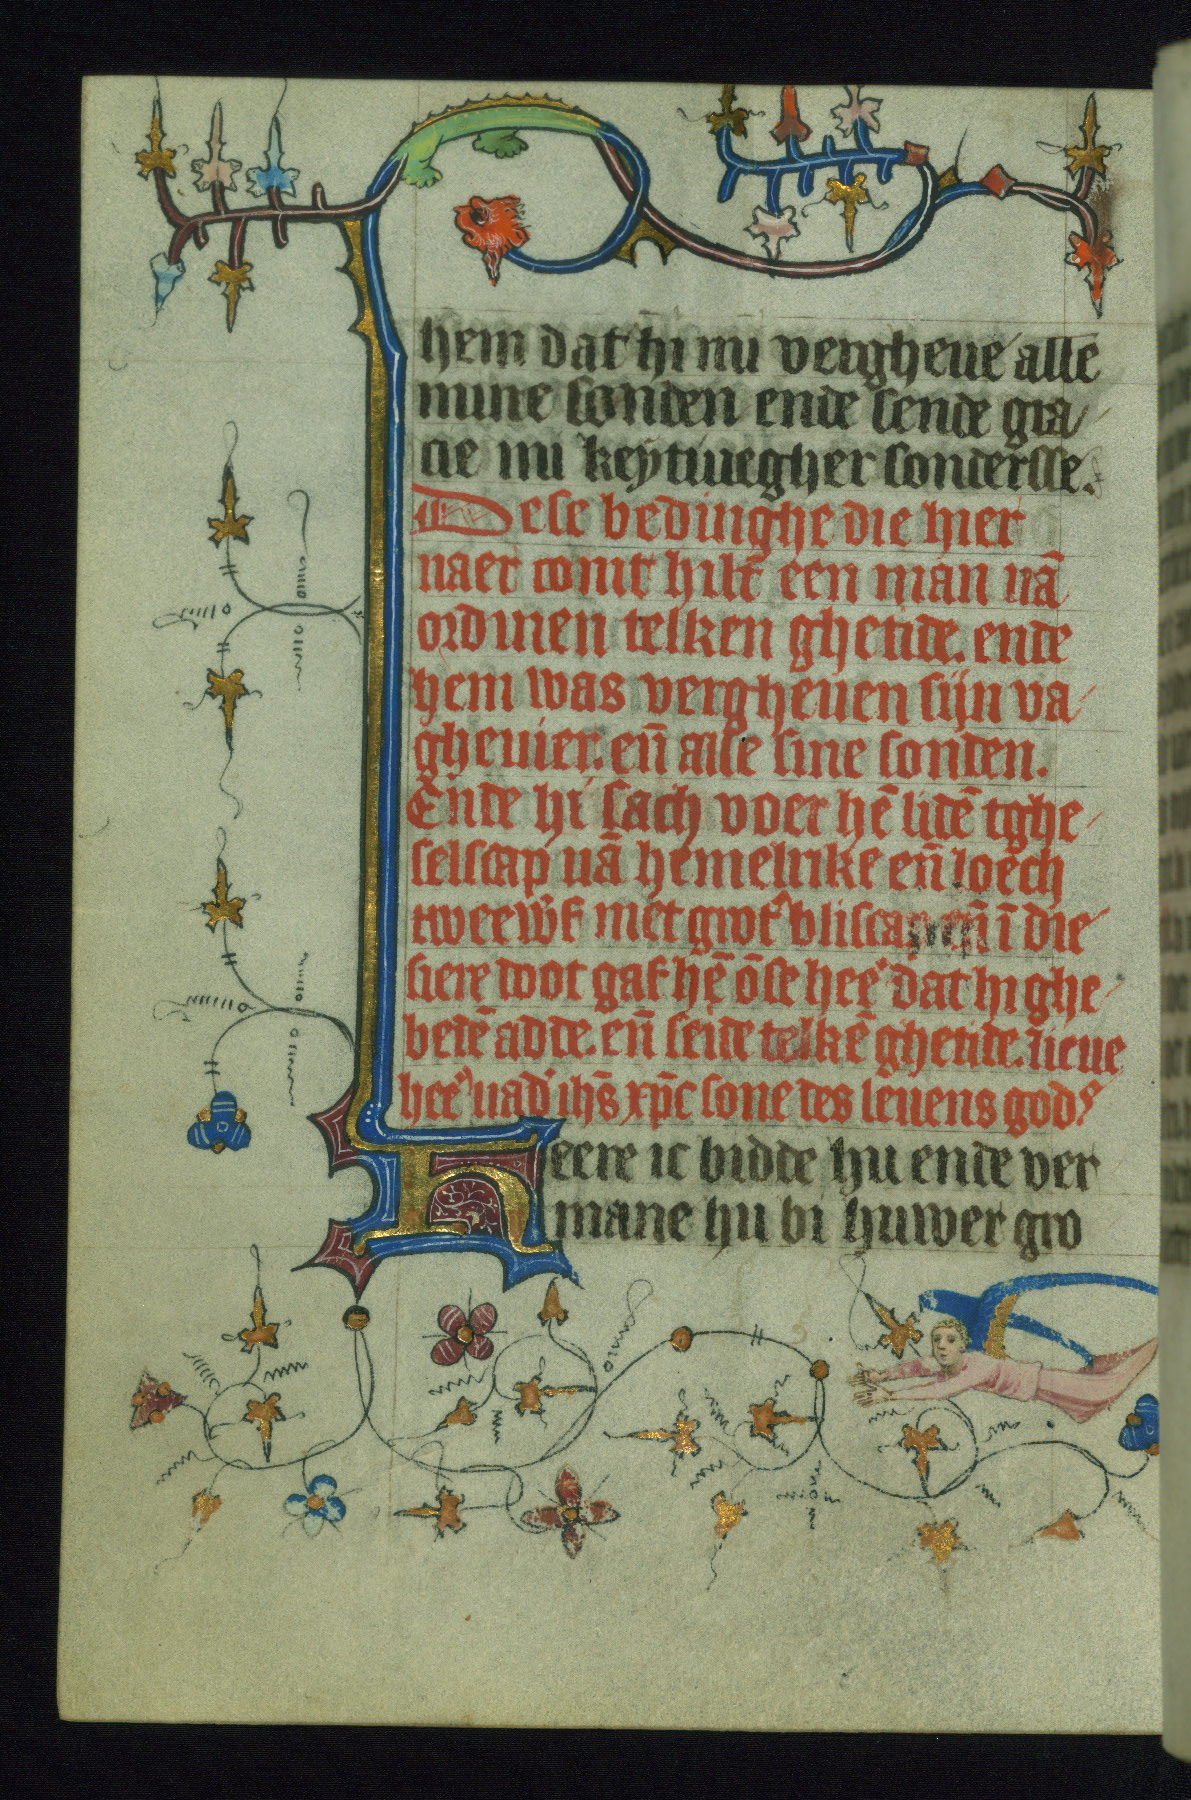 hem dat hi mi vergheue alle
mine sonden ende sende gra/
cie mi keytiuegher sondersse.
Dese bedinghe die hier
naer comt hilt een man uā
ordinen telken ghetide. ende
hem was vergheuen sijn va/
gheuier. en̄ alle sine sonden.
Ende hi sach voer hē lidē tghe/
selscap uā hemelrike en̄ loech
tweewf met grot bliscap en̄ ī die/
siere doot gaf hē ōse hee dat hi ghe/
betē adde. en̄ seide telkē ghetide. lieue
hee uad ihs̄ xp̄c sone des leuens god
Heere ic bidde hu ende ver
mane hu bi huwer gro